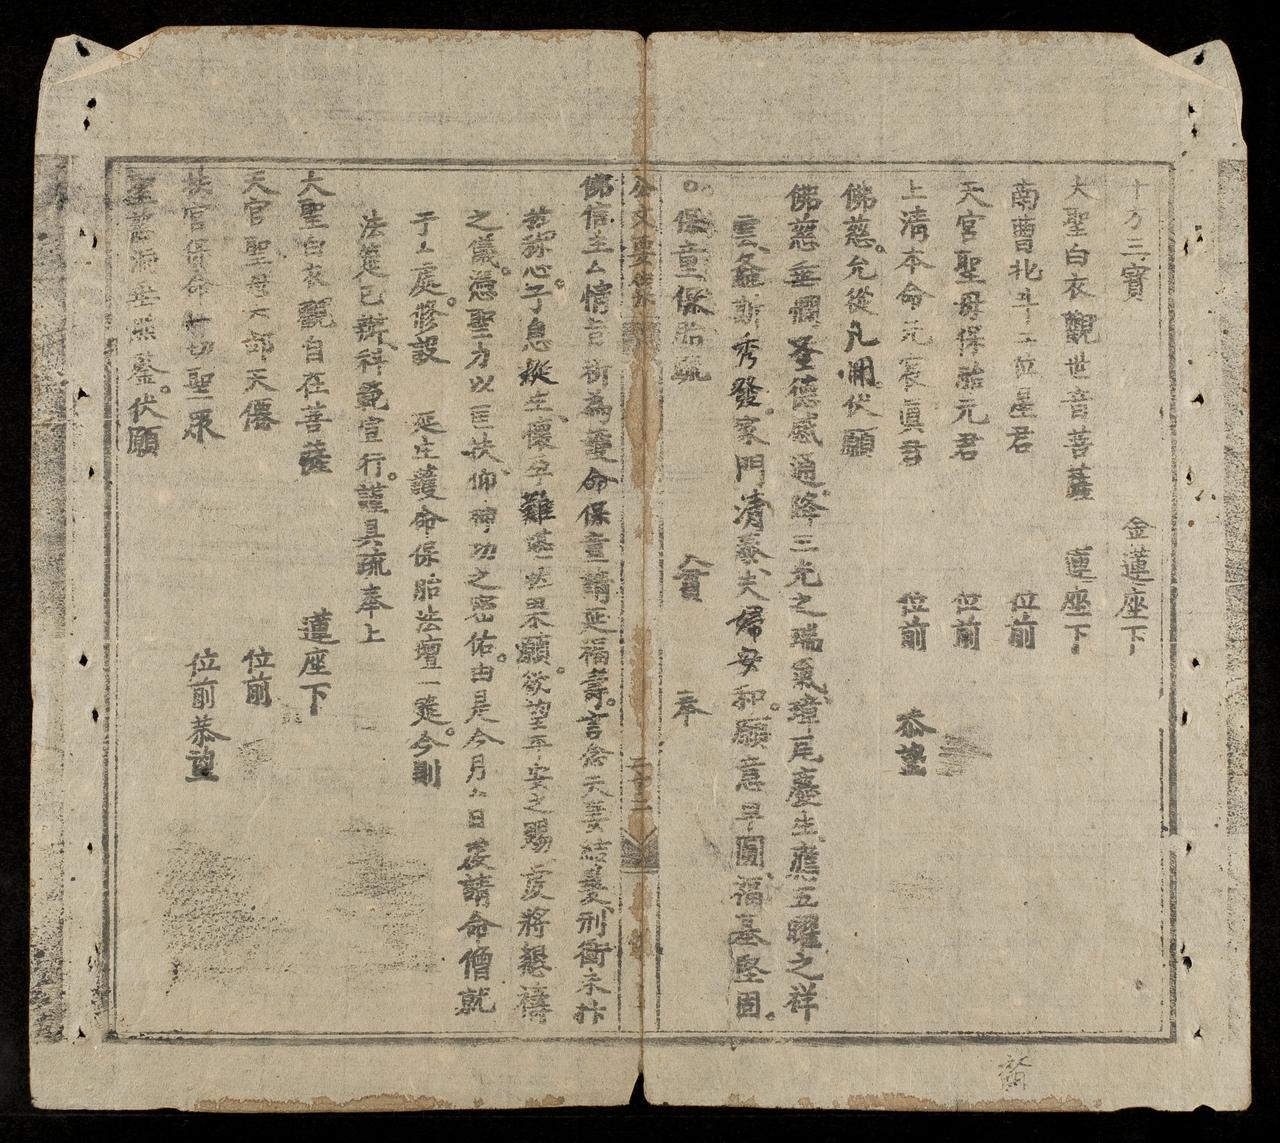 十方三寶 金蓮座下
大聖白衣觀世音菩薩 蓮座下
南曹北斗 位星君 位前
天宮聖母保胎元君 位前
上清本命元辰真君 位前 恭望
佛慈允從凡 伏願
佛慈垂憫聖德感通降三光之瑞氣璋瓦慶生應五曜之祥
雲螽斯秀發家門清泰夫婦安和願意早圓福基堅固
保童保胎疏 貢 奉
公文要集 二十二
佛信主厶情旨祈為護命保童請延福壽言念夫妻結 刑衝未
心于息 生懷孕難 願欲望平安之賜 將懇禱
之儀憑聖力以匡扶仰神功之密佑由是今月厶日 請命僧就
于厶處修設 延生護命保胎法壇一筵今則
法筵已辦科範宣行謹具疏奉上
大聖白衣觀自在菩薩 蓮座下
天官聖母 部天僊 位前
扶官保命一切聖眾 位前恭望
聖慈 垂 鑒伏願
齋